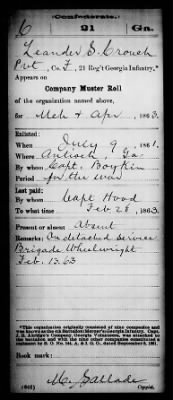 Confederate.
6 21 Ga.
Leander S. Crouch
Pvt, Co. F, 21 Reg't Georgia Infantry.*
Appears on
Company Muster Roll
of the organization named above,
for Mch & Apr, 1863.
Enlisted:
When July 9, 1861.
Where Antioch, Ga.
By whom Capt. Boykin
Period for the war
Last paid:
By whom Capt Hood
To what time Feb 28, 1863.
Present or absent Absent
Remarks: On detached service
Brigade Wheelwright
Feb. 13. 63
*This organization originally consisted of nine companies and
was known as the
Book mark:
(642) Copyist.